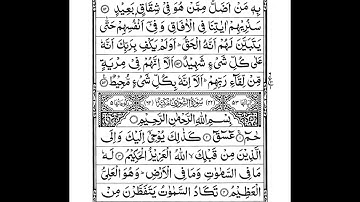 بِهٖ مَنْ اَضَلُّ مِمَّنْ هُوَ فِیْ شِقَاقٍۭ بَعِیْدٍ ۝
سَنُرِیْهِمْ اٰیٰتِنَا فِی الْاٰفَاقِ وَ فِیْۤ اَنْفُسِهِمْ حَتّٰی
یَتَبَیَّنَ لَهُمْ اَنَّهُ الْحَقُّ ؕ اَوَلَمْ یَكْفِ بِرَبِّكَ اَنَّهٗ
عَلٰی كُلِّ شَیْءٍ شَهِیْدٌ ۝ اَلَاۤ اِنَّهُمْ فِیْ مِرْیَةٍ
مِّنْ لِّقَآءِ رَبِّهِمْ ؕ اَلَاۤ اِنَّهٗ بِكُلِّ شَیْءٍ مُّحِیْطٌ ۝
بِسْمِ اللّٰهِ الرَّحْمٰنِ الرَّحِیْمِ
حٰمٓ ۝ عٓسٓقٓ ۝ كَذٰلِكَ یُوْحِیْۤ اِلَیْكَ وَ اِلَی
الَّذِیْنَ مِنْ قَبْلِكَ ۙ اللّٰهُ الْعَزِیْزُ الْحَكِیْمُ ۝ لَهٗ
مَا فِی السَّمٰوٰتِ وَ مَا فِی الْاَرْضِ ؕ وَ هُوَ الْعَلِیُّ
الْعَظِیْمُ ۝ تَكَادُ السَّمٰوٰتُ یَتَفَطَّرْنَ مِنْ